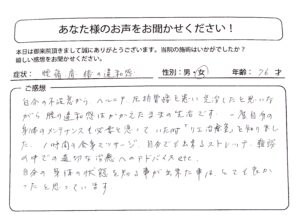 あなた様のお声をお聞かせください！
本日は御来院頂きまして誠にありがとうございます。当院の施術はいかがでしたか？
嬉しい感想をお聞かせください。
症状： 腰痛 肩 膝の違和感 性別：男・女 年齢：76才
＜ご感想＞
自分の不注意から ヘルニア、圧迫骨折と思い 完治したと思いな
がら 膝の違和感はかかえたままの生活です。一度自分の
身体のメンテナンスも必要と思っていた時「リエ治療院」を知りまし
た。1時間の全身マッサージ、自分でも出来るストレッチ、雑談
の中での適切な治療へのアドバイス etc.
自分の身体の状態を知る事が出来た事は、とても良か
ったと思っています